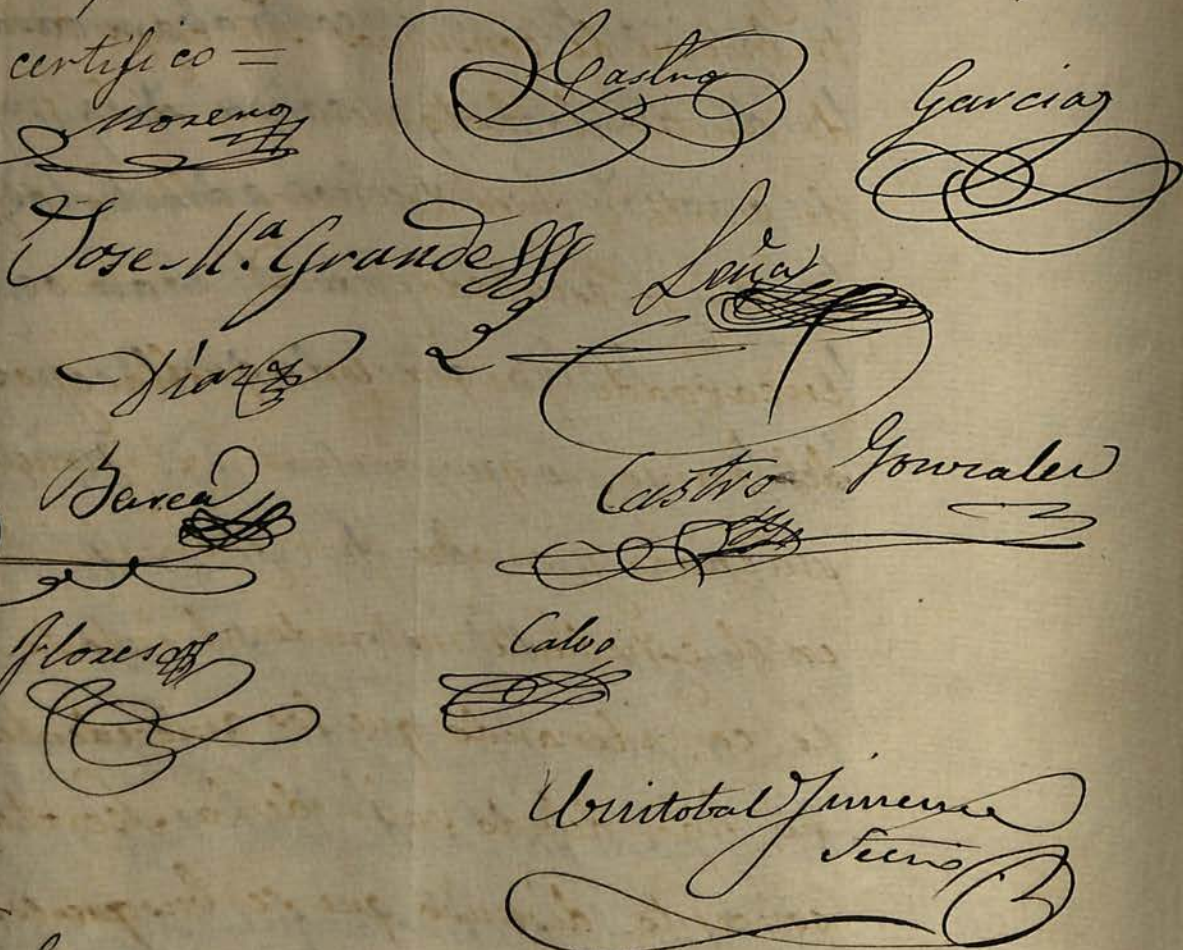 certifico =
Moreno
Castro
Garcia
Jose M.ª Grande
Díaz
Barea
Castro
Gonzalez
Flores
Calvo
Cristobal Jimenez
Srio